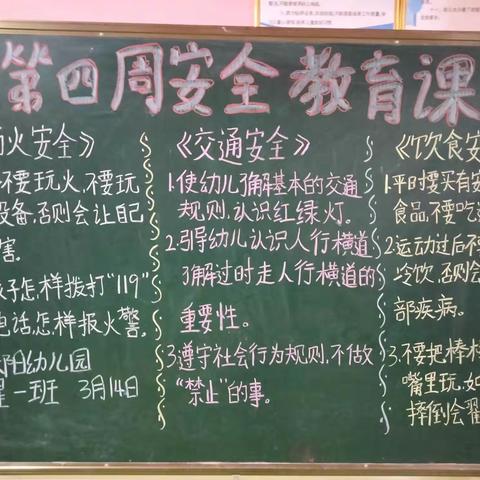 第四周安全教育课
火安全》
不要玩火,不要玩
设备,否则会让自己
害.
子怎样拨打"119"
电话,怎样报火警.
阳幼儿园
星一班 3月14日
《交通安全》
1.使幼儿了解基本的交通
规则,认识红绿灯.
2.引导幼儿认识人行横道
了解过时走人行横道的
重要性.
3.遵守社会行为规则,不做
"禁止"的事.
《饮食安
1.平时要买有安
食品,不要吃
2.运动过后不
冷饮,否则会
部疾病.
3.不要把棒
嘴里玩,如
摔倒会